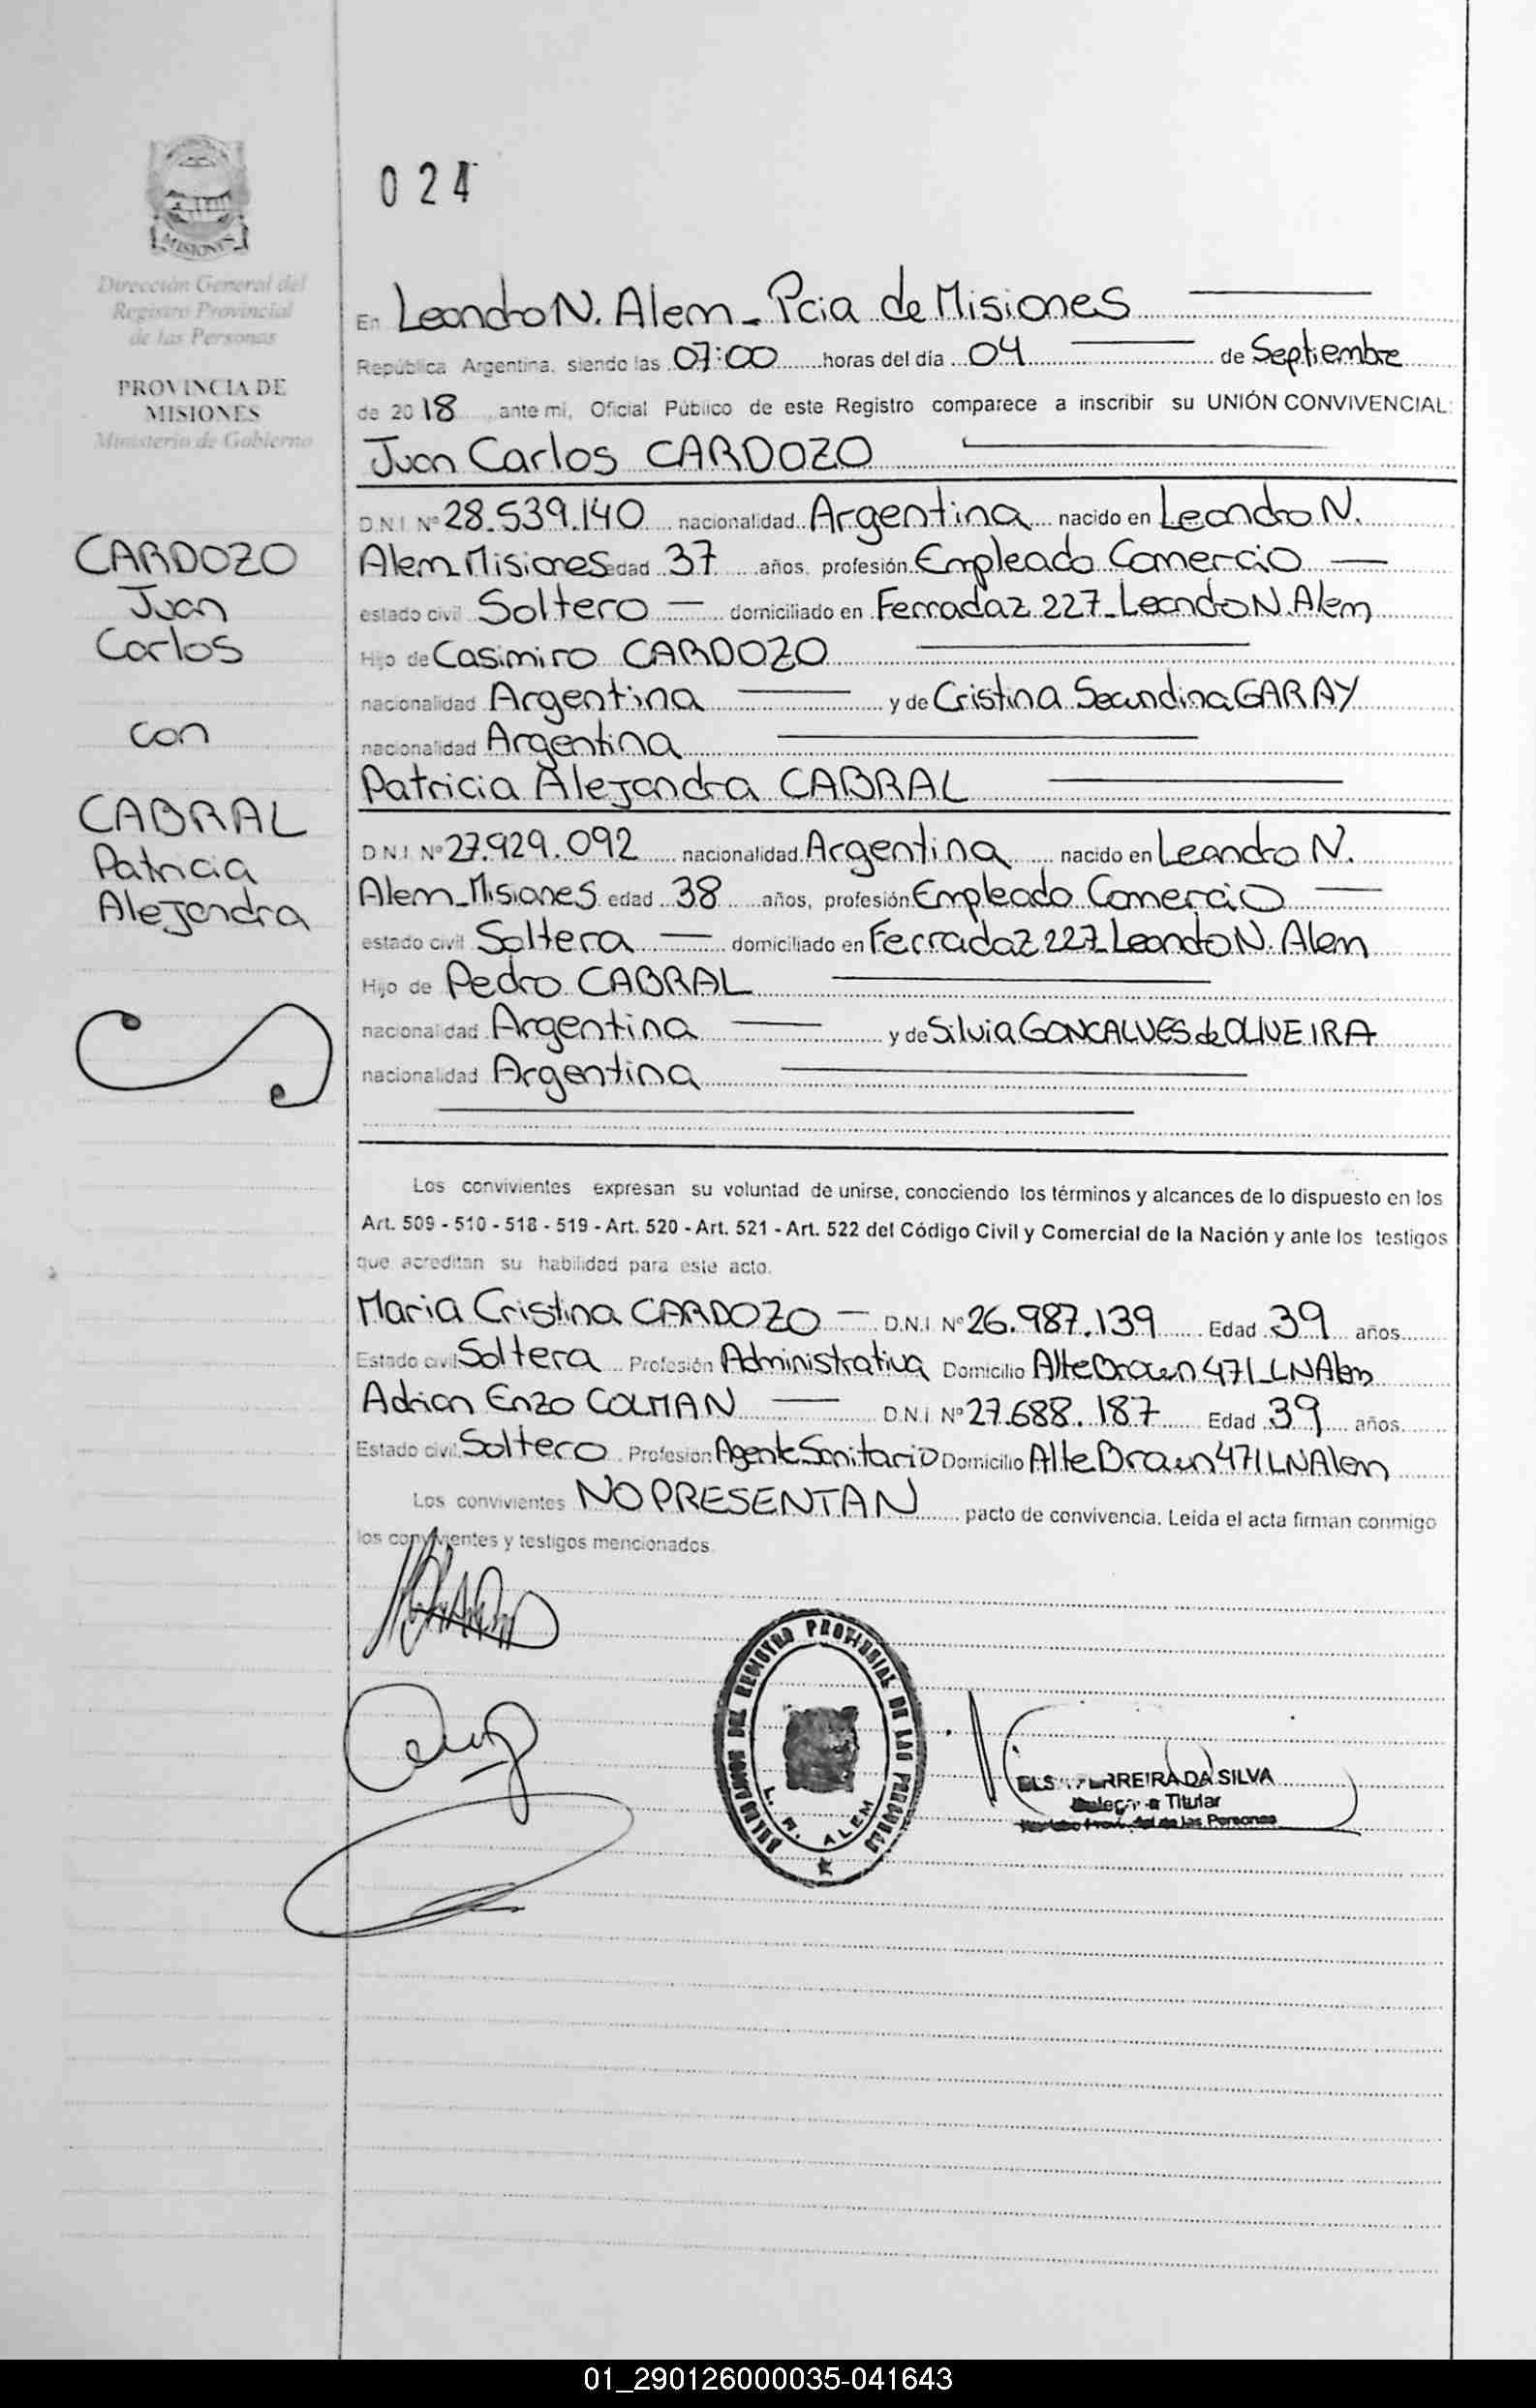 024
MISIONES
Dirección General del
Registro Provincial
de las Personas
PROVINCIA DE
MISIONES
Ministerio de Gobierno
CARDOZO
Juan
Carlos
con
CABRAL
Patricia
Alejandra
En Leandro N. Alem - Pcia de Misiones
República Argentina, siendo las 07:00 horas del día 04 de Septiembre
de 2018 ante mi, Oficial Público de este Registro comparece a inscribir su UNIÓN CONVIVENCIAL:
Juan Carlos CARDOZO
D.N.I. Nº 28.539.140 nacionalidad Argentina nacido en Leandro N.
Alem Misiones edad 37 años, profesión Empleado Comercio
estado civil Soltero domiciliado en Ferradaz 227 - Leandro N. Alem
Hijo de Casimiro CARDOZO
nacionalidad Argentina y de Cristina Secundina GARAY
nacionalidad Argentina
Patricia Alejandra CABRAL
D.N.I. Nº 27.929.092 nacionalidad Argentina nacido en Leandro N.
Alem - Misiones edad 38 años, profesión Empleado Comercio
estado civil Soltera domiciliado en Ferradaz 227 Leandro N. Alem
Hijo de Pedro CABRAL
nacionalidad Argentina y de Silvia GONCALVES de OLIVEIRA
nacionalidad Argentina
Los convivientes expresan su voluntad de unirse, conociendo los términos y alcances de lo dispuesto en los
Art. 509 - 510 - 518 - 519 - Art. 520 - Art. 521 - Art. 522 del Código Civil y Comercial de la Nación y ante los testigos
que acreditan su habilidad para este acto.
Maria Cristina CARDOZO D.N.I. Nº 26.987.139 Edad 39 años
Estado civil Soltera Profesión Administrativa Domicilio Alte Brown 471 - LN Alem
Adrian Enzo COLMAN D.N.I. Nº 27.688.187 Edad 39 años
Estado civil Soltero Profesión Agente Sanitario Domicilio Alte Brown 471 LN Alem
Los convivientes NO PRESENTAN pacto de convivencia. Leída el acta firman conmigo
los convivientes y testigos mencionados.
REGISTRO PROVINCIAL DE LAS PERSONAS
L. N. ALEM
DA SILVA
Titular
de las Personas
01_290126000035-041643